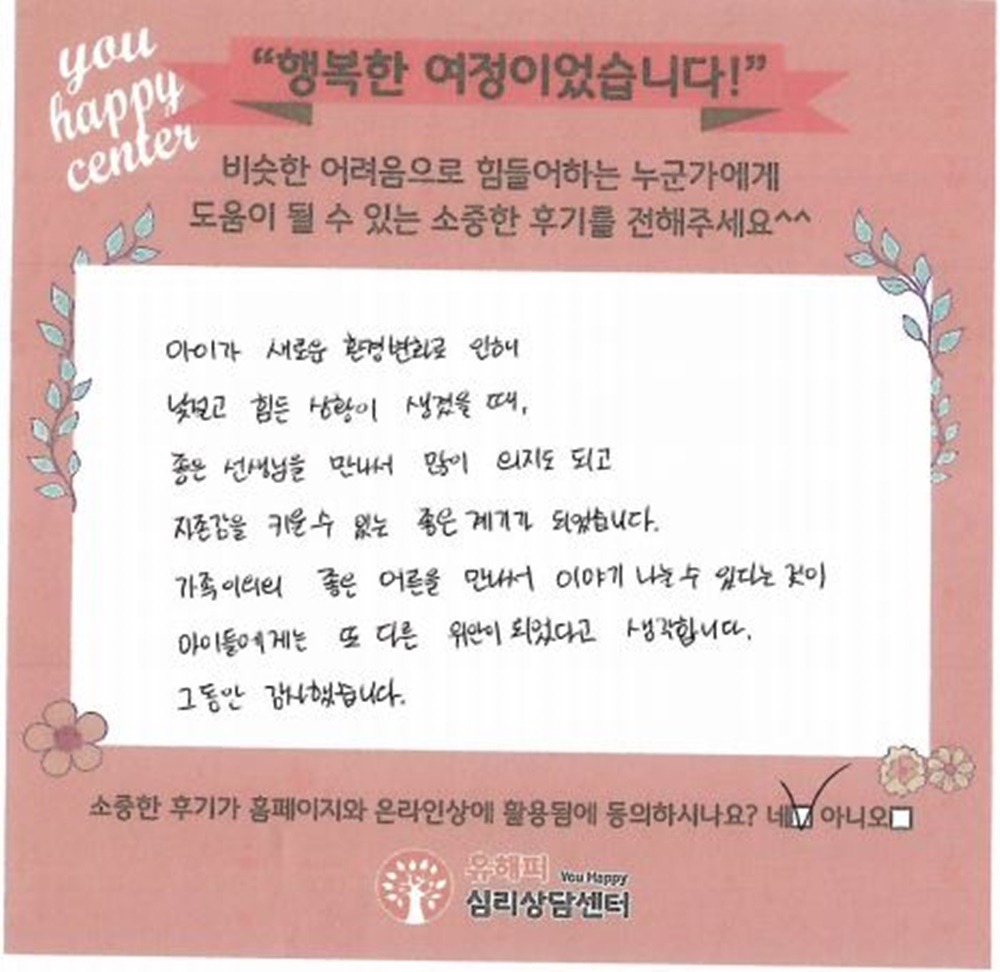 you
happy
center
“행복한 여정이었습니다!”
비슷한 어려움으로 힘들어하는 누군가에게
도움이 될 수 있는 소중한 후기를 전해주세요^^
아이가 새로운 환경변화로 인해
낯설고 힘든 상황이 생겼을 때,
좋은 선생님을 만나서 많이 의지도 되고
자존감을 키울 수 있는 좋은 계기가 되었습니다.
가족이외의 좋은 어른을 만나서 이야기 나눌 수 있다는 것이
아이들에게는 또 다른 위안이 되었다고 생각합니다.
그동안 감사했습니다.
소중한 후기가 홈페이지와 온라인상에 활용됨에 동의하시나요? 네☑ 아니오☐
유해피 You Happy
심리상담센터